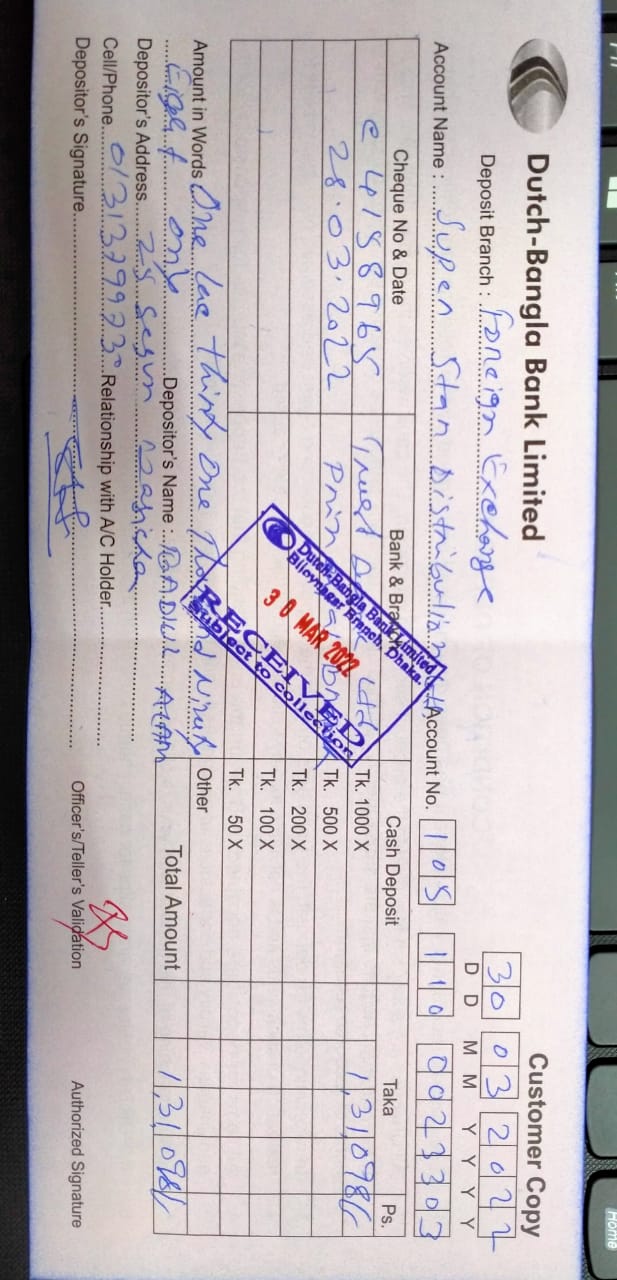 Dutch-Bangla Bank Limited
Customer Copy
Deposit Branch : Foreign Exchange
30 03 2022
D D M M Y Y Y Y
Account Name : Super Star Distribution
Account No. 105 110 0023303
Cheque No & Date
Bank & Branch
Cash Deposit
Taka
Ps.
C 4188965
Trust
Ltd
Tk. 1000 X
1,31,098/
28.03.2022
Tk. 500 X
Tk. 200 X
Tk. 100 X
Tk. 50 X
Other
Dutch-Bangla Bank Limited
Bijoynagar Branch, Dhaka.
30 MAR 2022
RECEIVED
Subject to collection
Amount in Words One lac thirty one Thousand Ninety
Eight only
Depositor's Name : RADIUL ALAM
Total Amount
1,31,098/
Depositor's Address 28 Segun
Cell/Phone Relationship with A/C Holder
Depositor's Signature
Officer's/Teller's Validation
Authorized Signature
Home